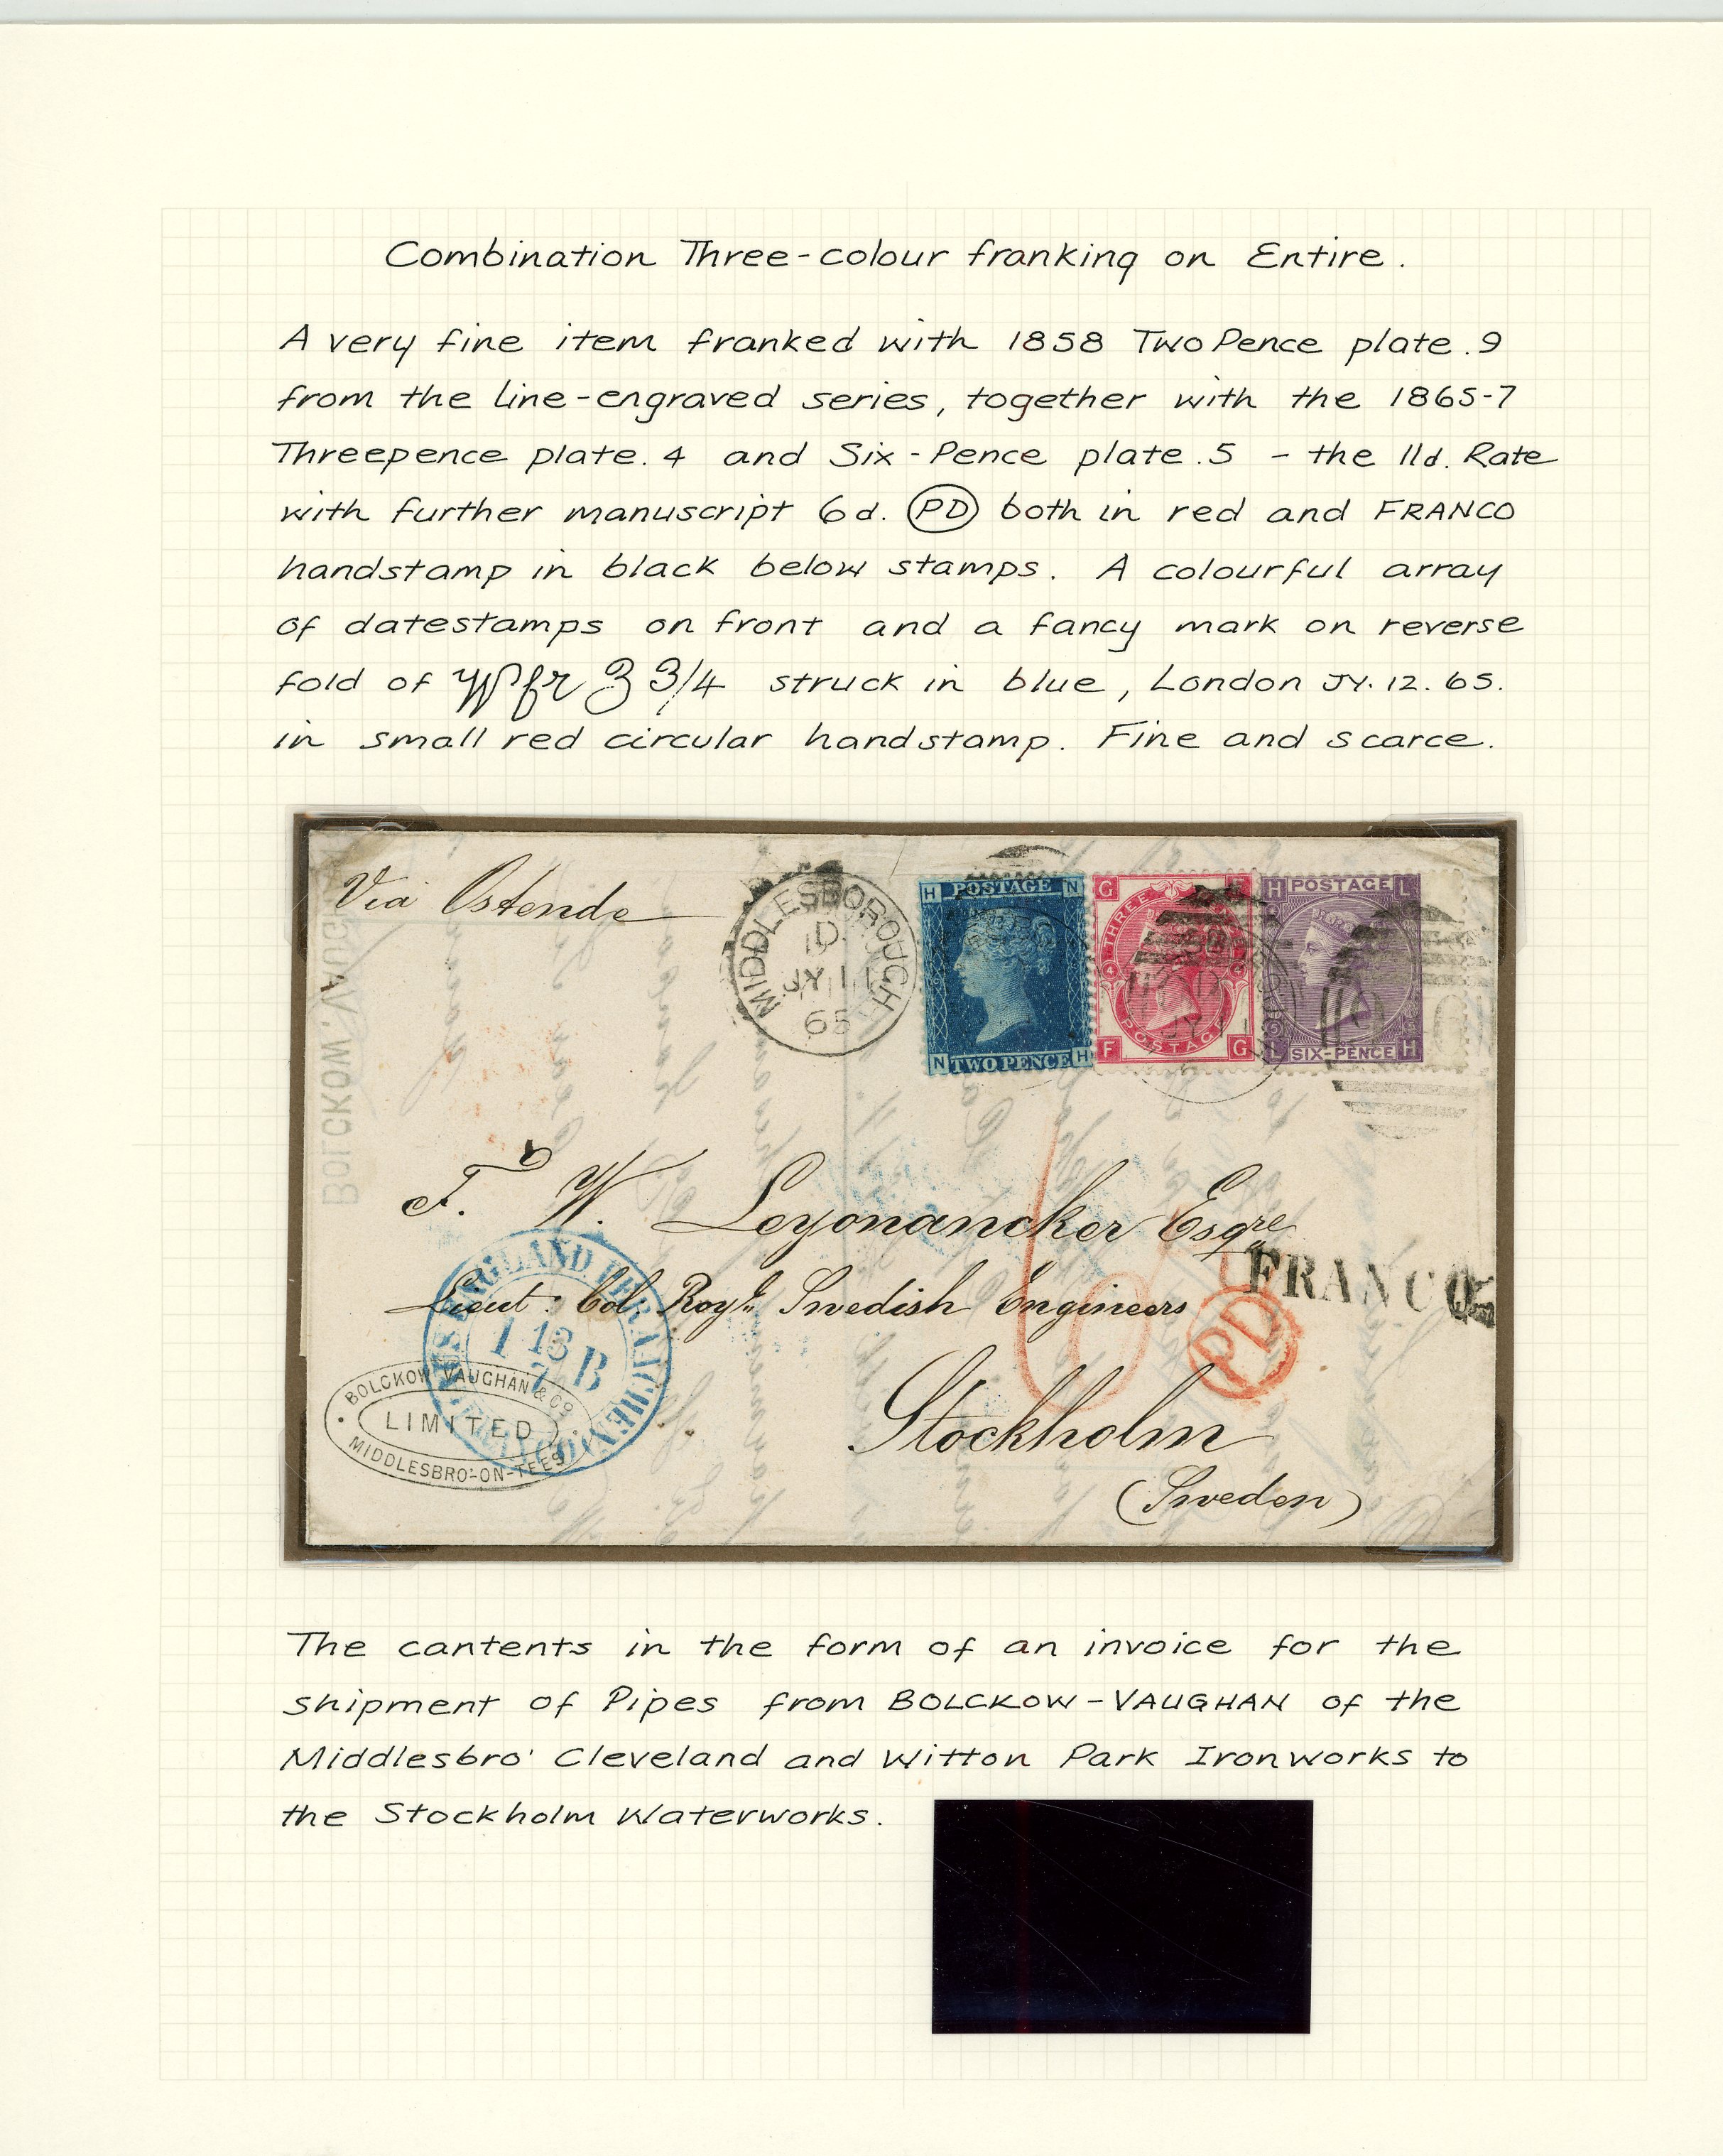 Combination Three-colour franking on Entire.
A very fine item franked with 1858 Two Pence plate.9
from the line-engraved series, together with the 1865-7
Threepence plate.4 and Six-Pence plate.5 - the 11d. Rate
with further manuscript 6d. PD both in red and FRANCO
handstamp in black below stamps. A colourful array
of datestamps on front and a fancy mark on reverse
fold of Wfr 3 3/4 struck in blue, London JY. 12. 65.
in small red circular handstamp. Fine and scarce.
Via Ostende
MIDDLESBOROUGH
D
JY 11
65
H POSTAGE N
N TWO PENCE H
G THREE
F POSTAGE G
H POSTAGE L
L SIX-PENCE H
BOLCKOW, VAUG
F. W. Leyonancker Esqre
FRANCO
Lieut. Col. Royl. Swedish Engineers
6
PD
ENGLAND PER AACHEN
FRANCO
1 13 B
7
BOLCKOW VAUGHAN & CO
LIMITED
MIDDLESBRO-ON-TEES
Stockholm
(Sweden)
The cantents in the form of an invoice for the
shipment of Pipes from BOLCKOW-VAUGHAN of the
Middlesbro' Cleveland and Witton Park Ironworks to
the Stockholm Waterworks.